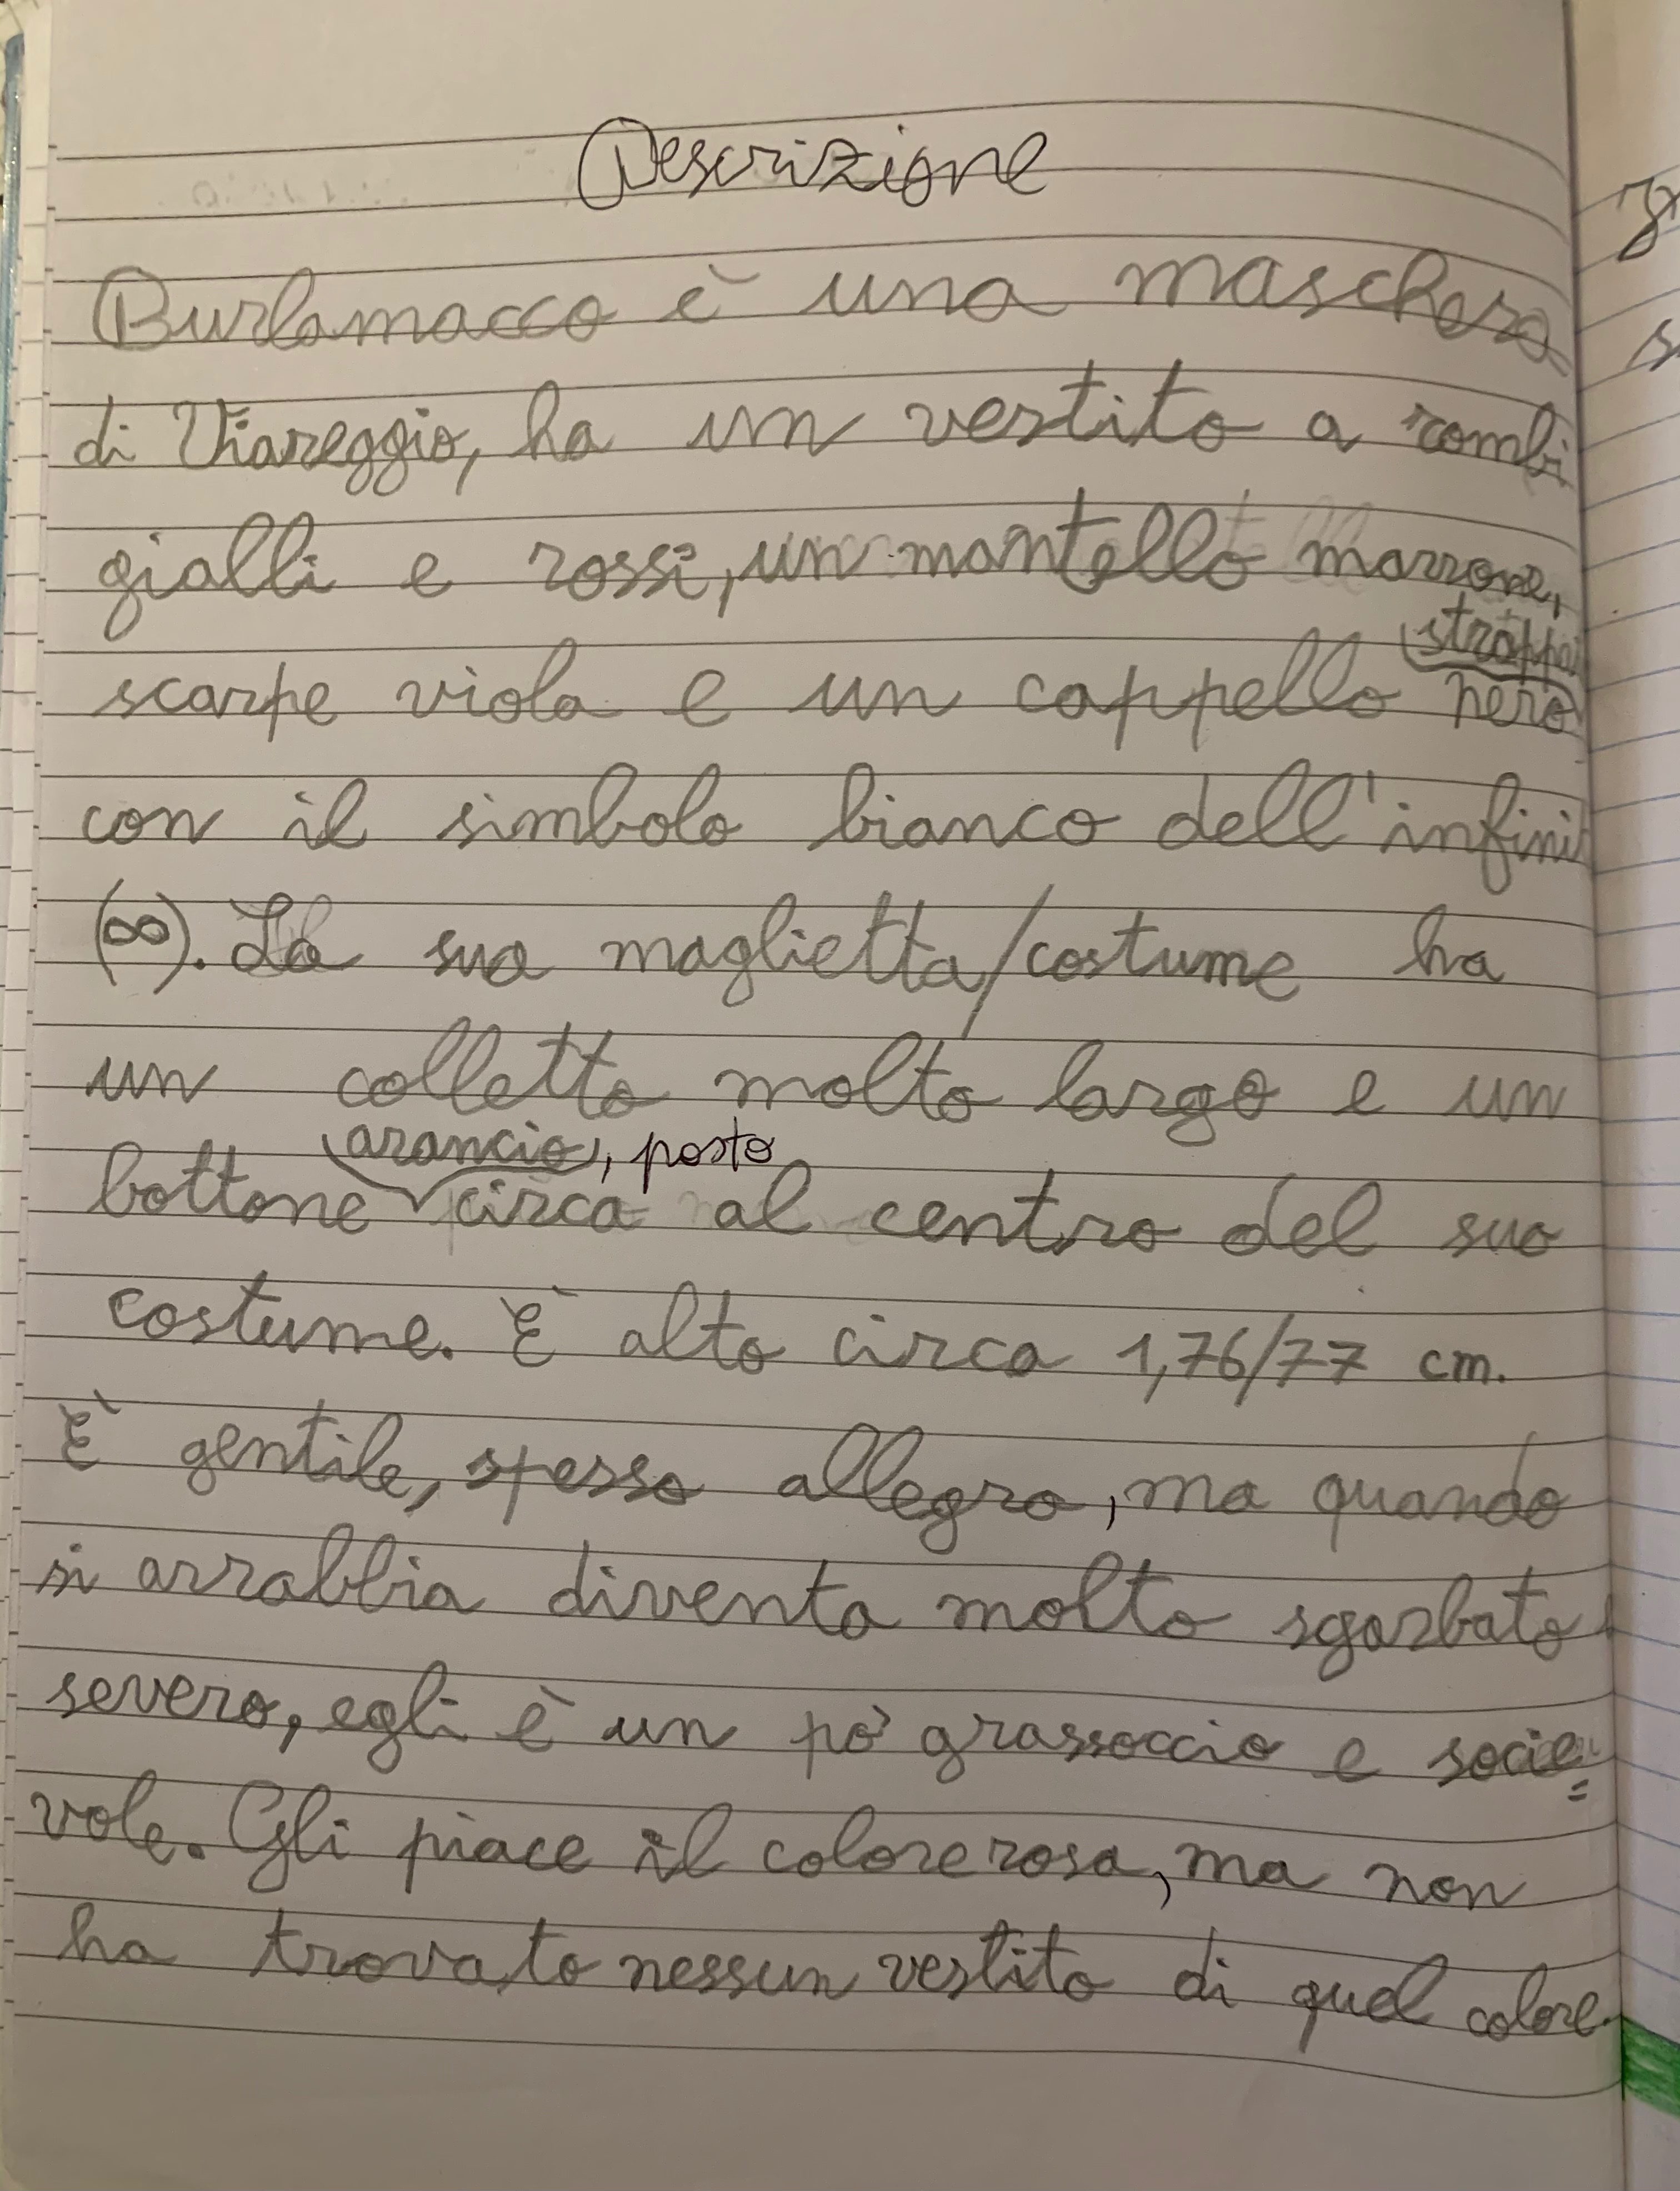 Descrizione
Burlamacco è una maschera
di Viareggio, ha un vestito a rombi
gialli e rossi, un mantello marrone,
strappa
scarpe viola e un cappello nero
con il simbolo bianco dell'infini
(∞). La sua maglietta/costume ha
un colletto molto largo e un
arancio, posto
bottone circa al centro del suo
costume. È alto circa 1,76/77 cm.
È gentile, spesso allegro, ma quando
si arrabbia diventa molto sgarbato
severo, egli è un pò grassoccio e socie=
vole. Gli piace il colore rosa, ma non
ha trovato nessun vestito di quel colore.